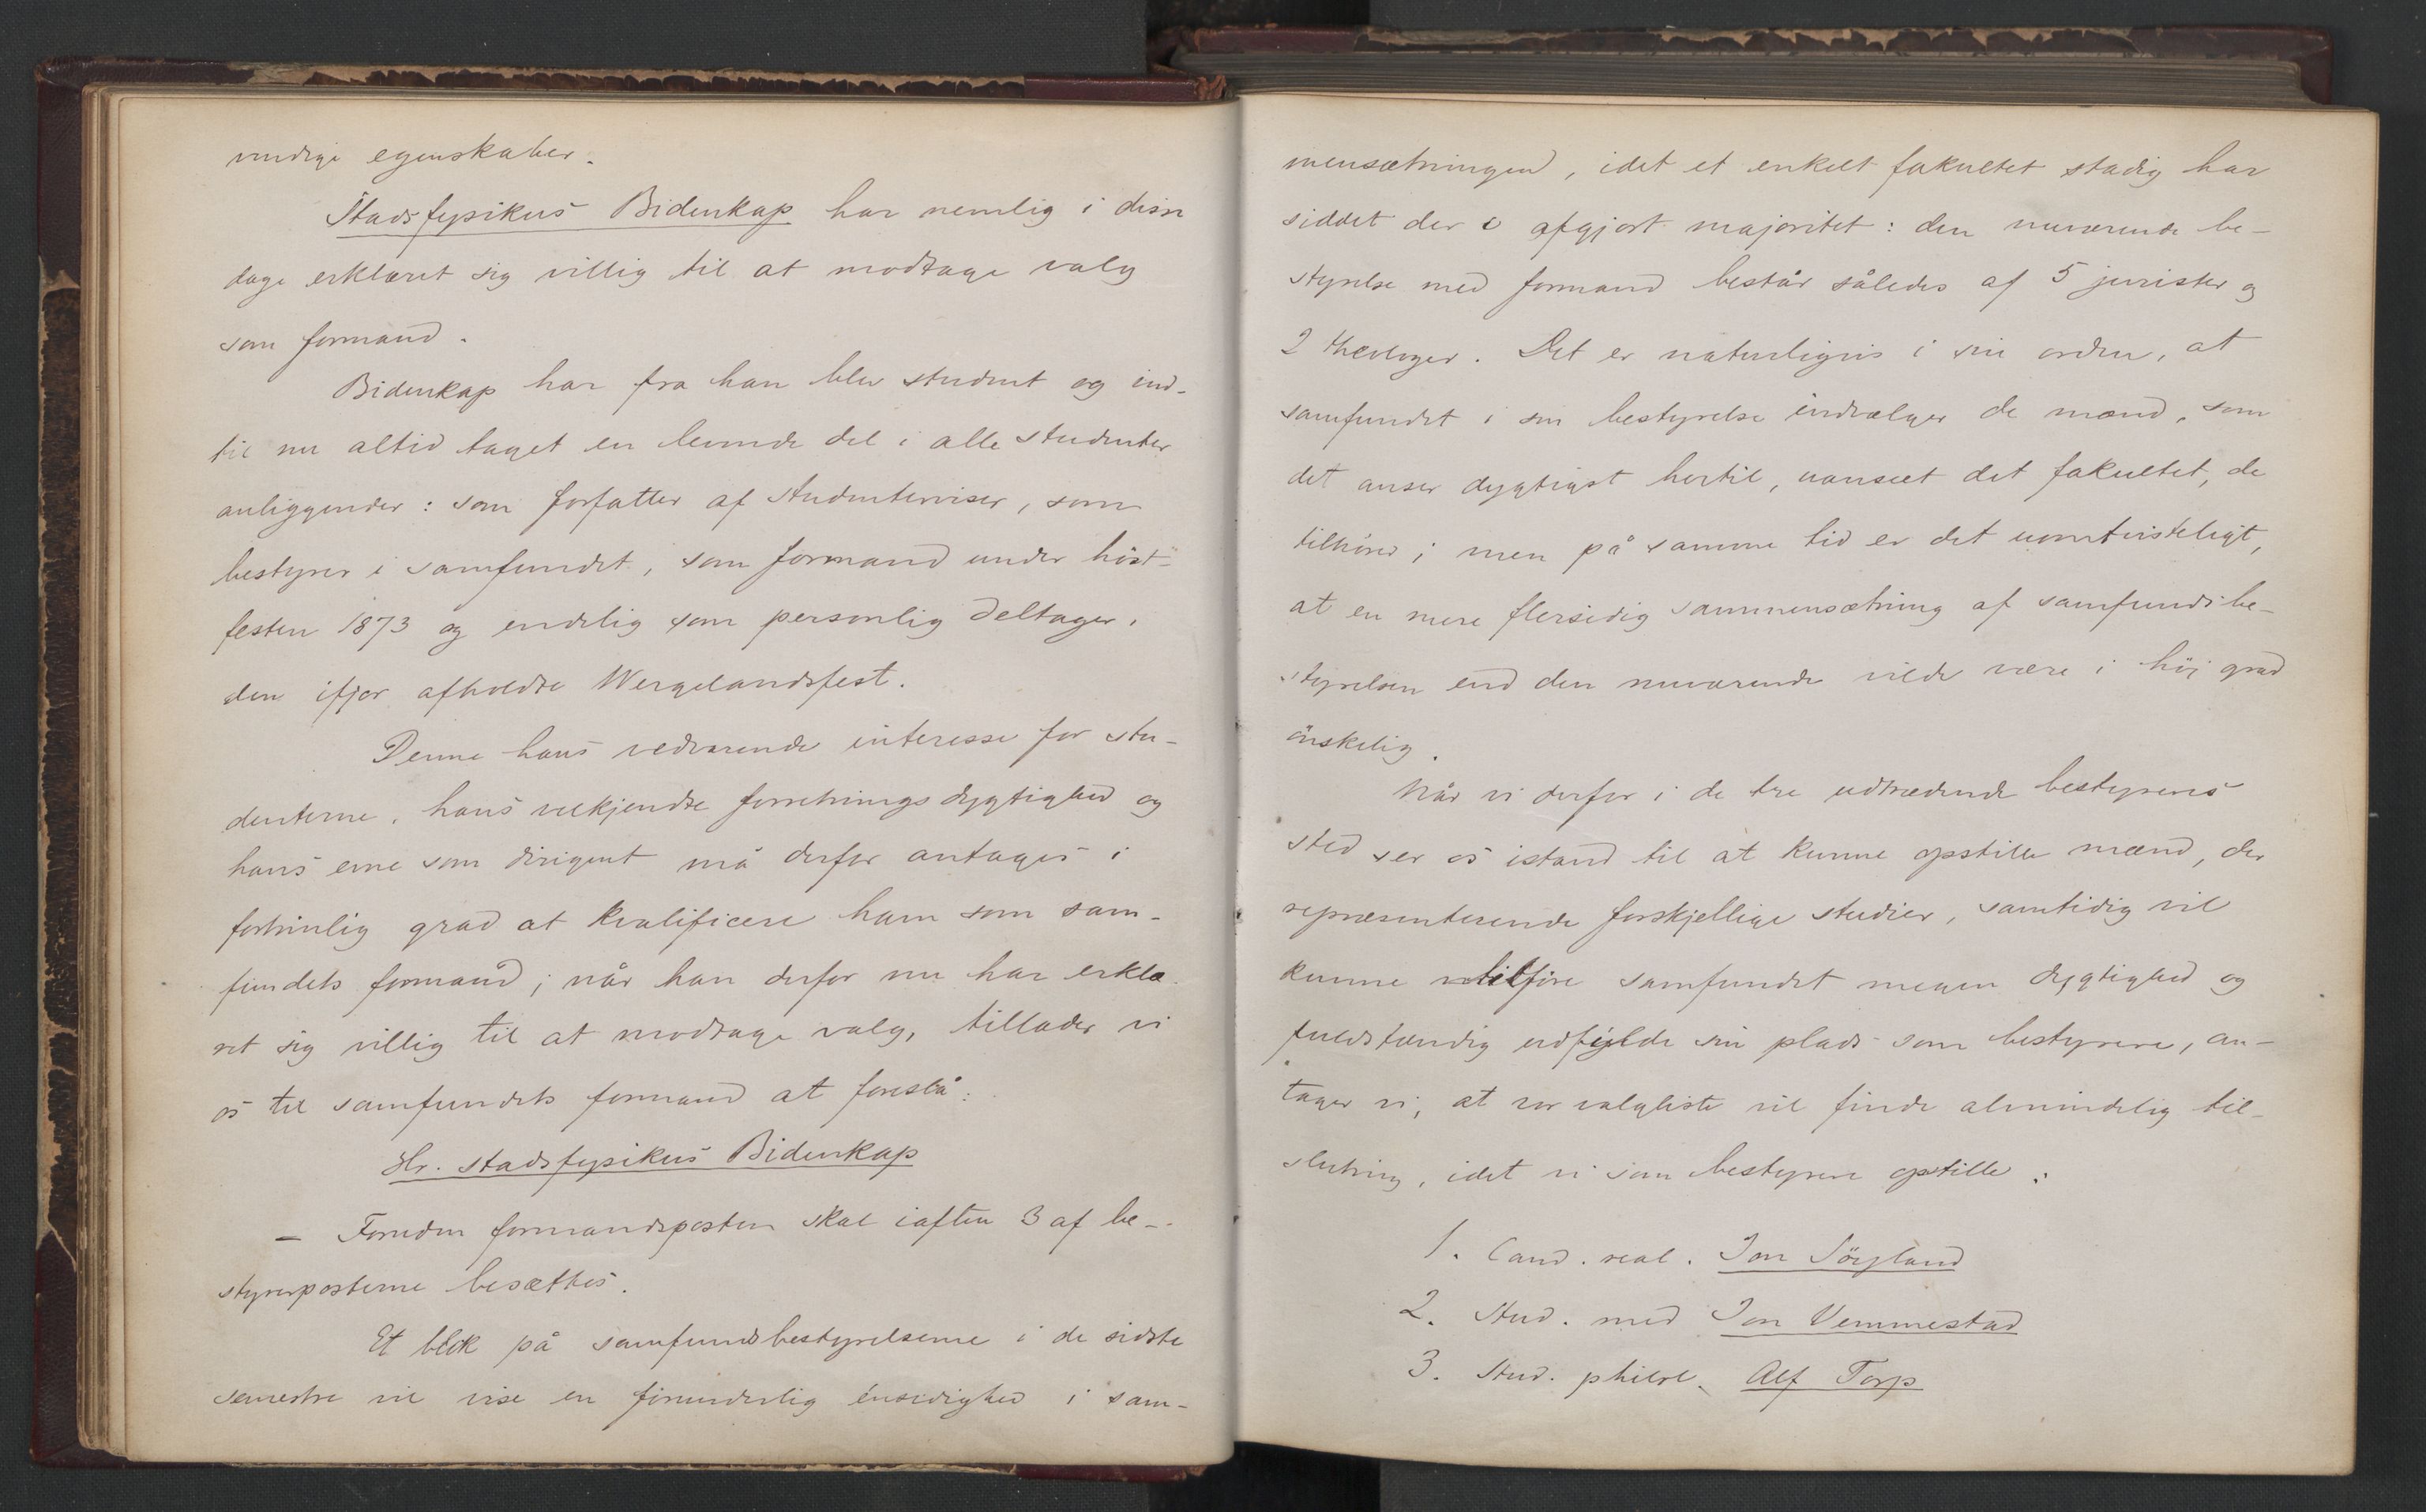 vendige egenskaber.
Stadsfysikus Bidenkap har nemlig i disse
dage erklæret sig villig til at modtage valg
som formand.
Bidenkap har fra han blev student og ind-
til nu altid taget en levende del i alle studenter
anliggender: som forfatter af studenterviser, som
bestyrer i samfundet, som formand under höst-
festen 1873 og endelig som personlig deltager i
den ifjor afholdte Wergelandsfest.
Denne hans vedvarende interesse for stu-
denterne, hans velkjendte forretningsdygtighed og
hans evne som dirigent må derfor antages i
fortrinlig grad at kvalificere ham som sam-
fundets formand; når han derfor nu har erklæ-
ret sig villig til at modtage valg, tillader vi
os til samfundets formand at foreslå:
Hr. stadsfysikus Bidenkap
— Foruden formandsposten skal iaften 3 af be-
styrerposterne besættes.
Et blik på samfundsbestyrelserne i de sidste
semestre vil vise en forunderlig énsidighed i sam-
mensætningen, idet et enkelt fakultet stadig har
siddet der i afgjort majoritet: den nuværende be-
styrelse med formand består således af 5 jurister og
2 theologer. Det er naturligvis i sin orden, at
samfundet i sin bestyrelse indvælger de mænd, som
det anser dygtigst hertil, uanseet det fakultet, de
tilhører; men på samme tid er det uomtvisteligt,
at en mere flersidig sammensætning af samfundsbe-
styrelsen end den nuværende vilde være i höj grad
önskelig.
Når vi derfor i de tre udtrædende bestyreres
sted ser os istand til at kunne opstille mænd, der
repræsenterende forskjellige studier, samtidig vil
kunne tilföre samfundet megen dygtighed og
fuldstændig udfylde sin plads som bestyrere, an-
tager vi, at vor valgliste vil finde almindelig til-
slutning, idet vi som bestyrere opstille:
1. Cand. real. Jon Sörgland
2. Stud. med Jon Vemmestad
3. Stud. philol. Alf Torp